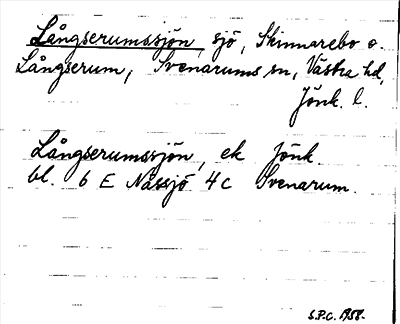 Långserumssjön, sjö, Skinnarebo o.
Långserum, Svenarums sn, Västra hd,
Jönk. l.
Långserumssjön, ek Jönk.
bl. 6 E Nässjö 4c Svenarum.
S.P.C. 1958.